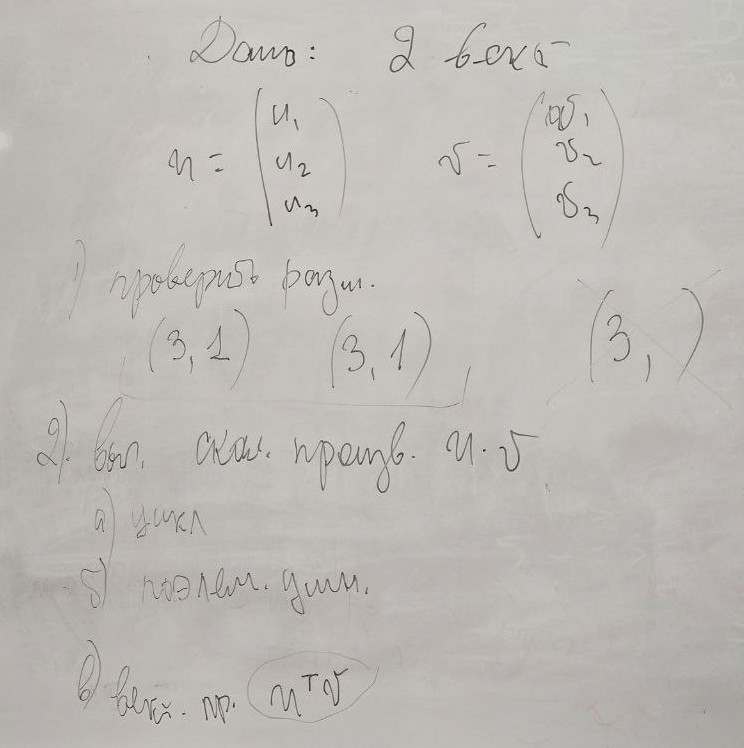 Дано: 2 век
u = (u₁ u₂ u₃) v = (v₁ v₂ v₃)
1) проверить разм.
(3, 1) (3, 1) (3, )
2). выч. скал. произв. u · v
а) цикл
б) поэлем. умн.
в) вект. пр. uᵀv